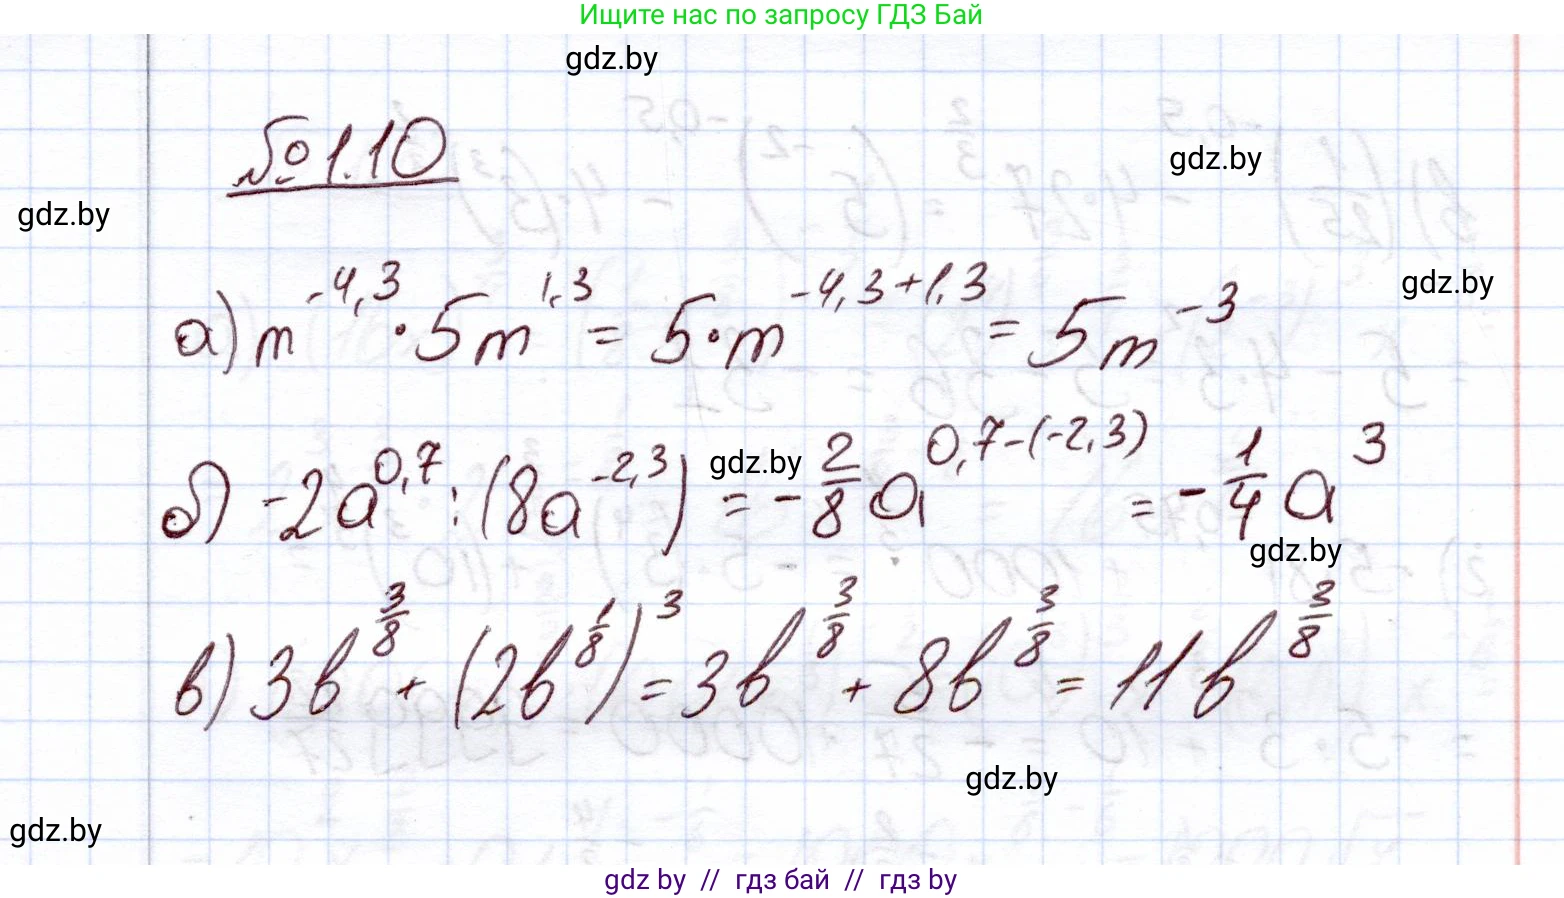 Ищите нас по запросу ГДЗ Бай
gdz.by
№ 1.10
gdz.by
gdz.by
gdz.by
а) m^{-4,3} · 5m^{1,3} = 5 · m^{-4,3+1,3} = 5m^{-3}
б) -2a^{0,7} : (8a^{-2,3}) = -\frac{2}{8} a^{0,7-(-2,3)} = -\frac{1}{4} a^3
gdz.by
gdz.by
в) 3b^{\frac{3}{8}} + (2b^{\frac{1}{8}})^3 = 3b^{\frac{3}{8}} + 8b^{\frac{3}{8}} = 11b^{\frac{3}{8}}
gdz.by
gdz.by
gdz by // гдз бай // гдз by